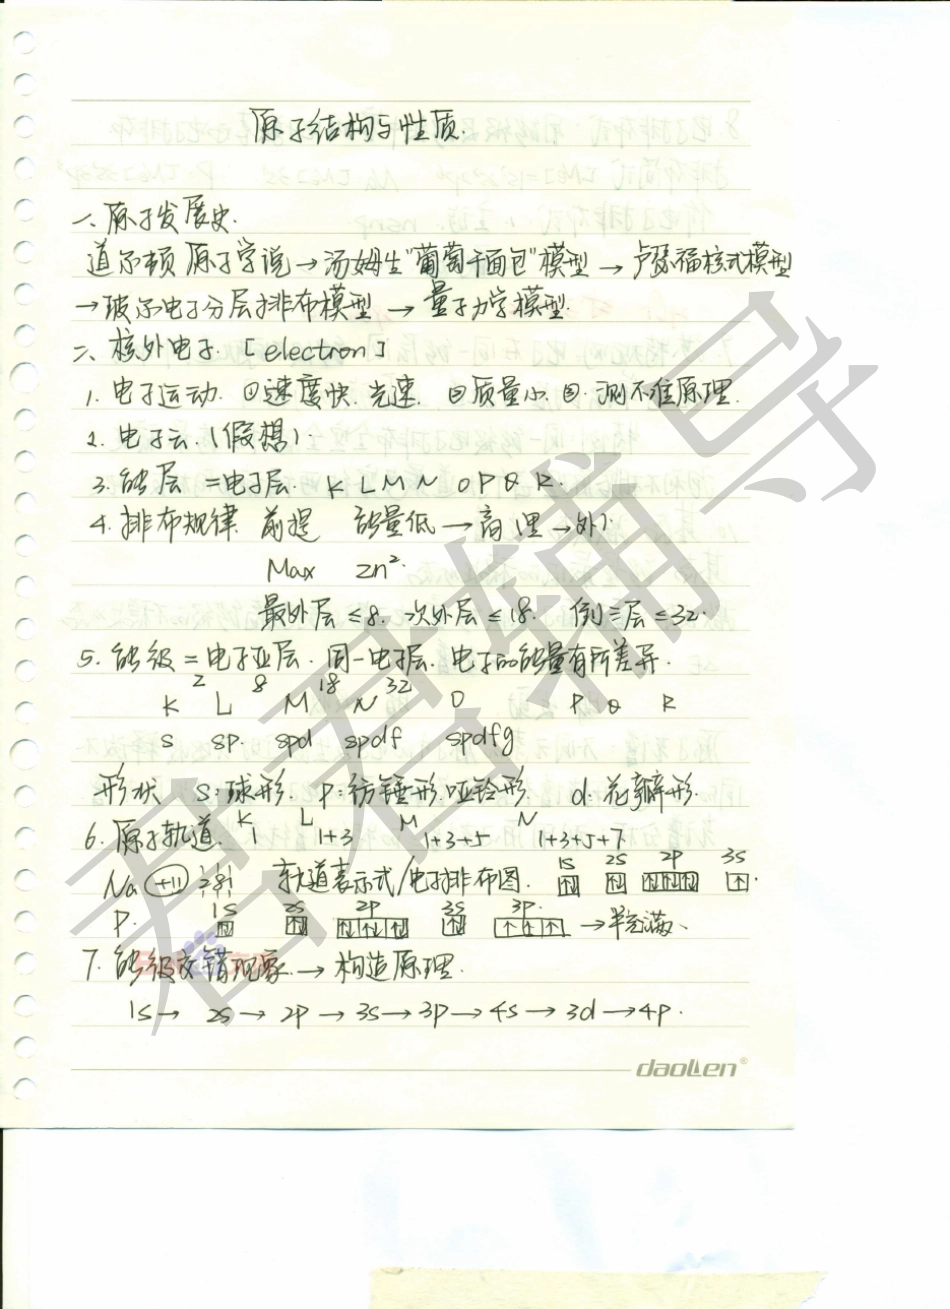 原子结构与性质.
一、原子发展史.
道尔顿原子学说→汤姆生"葡萄干面包"模型→卢瑟福核式模型
→玻尔电子分层排布模型→量子力学模型.
二、核外电子.[electron]
1. 电子运动. ①速度快.光速. ②质量小 ③.测不准原理.
2. 电子云.(假想).
3. 能层=电子层. K L M N O P Q R.
4. 排布规律 前提 能量低→高(里→外).
Max 2n².
最外层≤8.次外层≤18. 倒三层≤32.
5. 能级=电子亚层.同一电子层.电子的能量有所差异.
2 8 18 32
K L M N O P Q R
s sp. spd spdf spdfg
形状 s:球形. p:纺锤形.哑铃形. d:花瓣形.
K L M N
6. 原子轨道. 1 1+3 1+3+5 1+3+5+7
1s 2s 2p 3s
Na +11 2 8 1 轨道表示式/电子排布图. ↑↓ ↑↓ ↑↓↑↓↑↓ ↑.
1s 2s 2p 3s 3p.
P. ↑↓ ↑↓ ↑↓↑↓↑↓ ↑↓ ↑↑↑→半充满、
7. 能级交错现象.→构造原理.
1s→ 2s→2p→3s→3p→4s→3d→4p.
daolen®
君君辅导